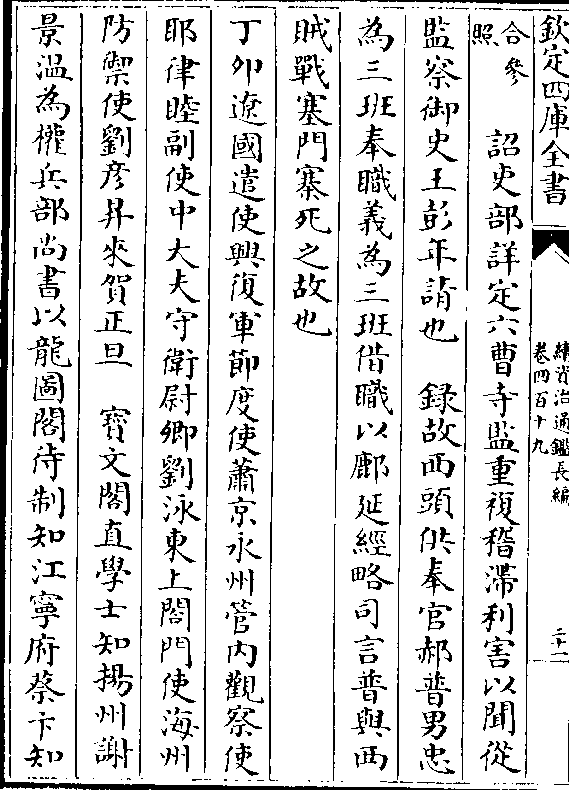 欽定四庫全書
續資治通鑑長編
卷四百十九
二十一
合參
照
詔吏部詳定六曹寺監重複稽滯利害以聞從
監察御史王彭年請也　録故西頭供奉官郝普男忠
為三班奉職義為三班借職以鄜延經略司言普與西
賊戰塞門寨死之故也
丁卯遼國遣使興復軍節度使蕭京永州管内觀察使
耶律睦副使中大夫守衛尉卿劉泳東上閤門使海州
防禦使劉彦昇來賀正旦　寶文閣直學士知揚州謝
景溫為權兵部尚書以龍圖閣待制知江寧府蔡卞知